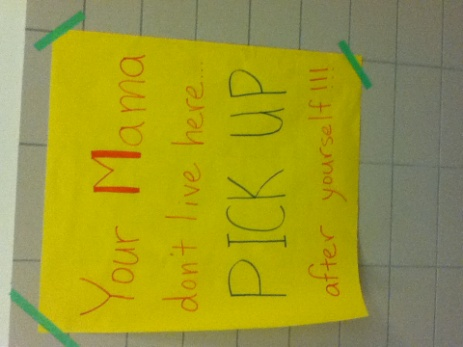 Your Mama
don't live here...
PICK UP
after yourself!!!